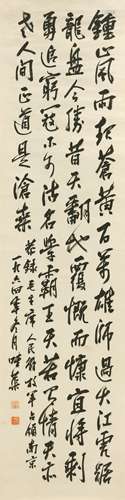 鍾山風雨起蒼黄百万雄師過大江虎踞
龍盤今勝昔天翻地覆慨而慷宜將剩
勇追窮寇不可沽名學霸王天若有情天亦
老人間正道是滄桑
恭録毛主席人民解放軍占領南京
一九六四年冬月